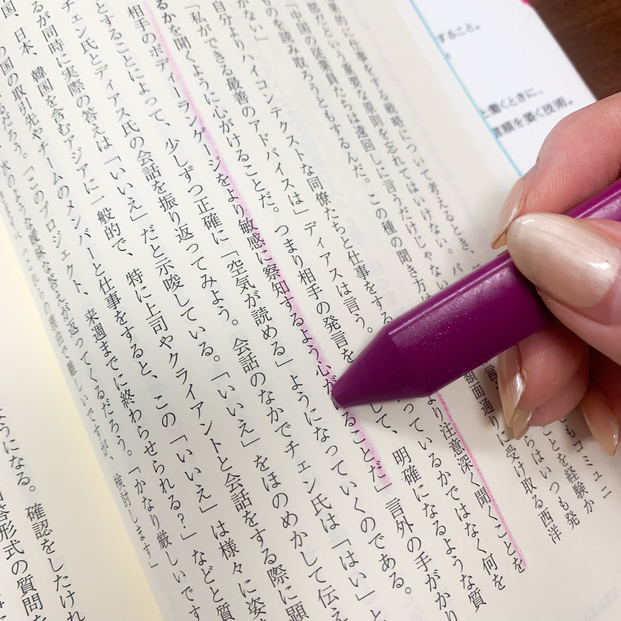 すること。
と働くときに、
果的に仕事をする戦略について考えるとき、バ
コミュニ
を経験か
はいつも発
額面通りに受け取る西洋
部だという重要な原則を忘れてはいけない。
中国の従業員たちは遠回しに言うだけじゃない
読み取ろうともするんだ。この種の聞き方は
かない」
自分よりハイコンテクストな同僚たちと仕事をする より注意深く聞くことを
「私ができる最善のアドバイスは」ディアスは言う。 っているかではなく何を
るかを聞くように心がけることだ。つまり相手の発言を して、明確になるような質
相手のボディーランゲージをより敏感に察知するよう心が ることだ」 言外の手がかり
とすることによって、少しずつ正確に「空気が読める」ようになっていくのである。
チェン氏とディアス氏の会話を振り返ってみよう。会話のなかでチェン氏は「はい」と
るが同時に実際の答えは「いいえ」だと示唆している。「いいえ」をほのめかして伝え
国、日本、韓国を含むアジアに一般的で、特に上司やクライアントと会話をする際に顕
の国の取引先やチームのメンバーと仕事をすると、この「いいえ」は様々に姿
だろう。「このプロジェクト、来週までに終わらせられる?」などと質
な曖昧な答えが返ってくるだろう。「かなり厳しいです
検討します」
ようになる。確認をしたけれ
答形式の質問を